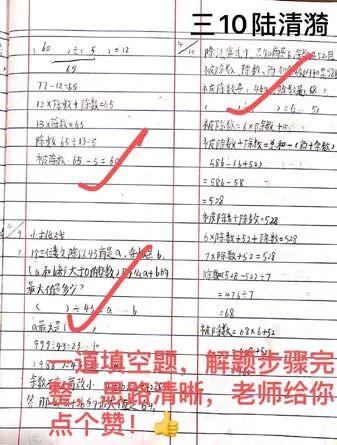 三10陆清漪
( 60 )÷( 5 )=12
65
77-12=65
12×除数+除数=65
13×除数=65
除数:65÷13=5
被除数:65-5=60
小升收线
1个三位数除以43,商是a,余数是b,
(a和b都大于0的数)则a+b的
最大值是多少?
( )÷43=a…b
a最大是( )
999÷43=23…10
除法算式中,已知商是6,余数是52,且
( )÷( )=6…52
被除数+除数=总和-(商+余数)
586-(6+52)
=586-58
=528
被除数+除数=528
6×除数+52+除数=528
7×除数+52=528
除数:(528-52)÷7
=476÷7
=68
被除数=68×6+52
一道填空题，解题步骤完
整，思路清晰，老师给你
点个赞！👍